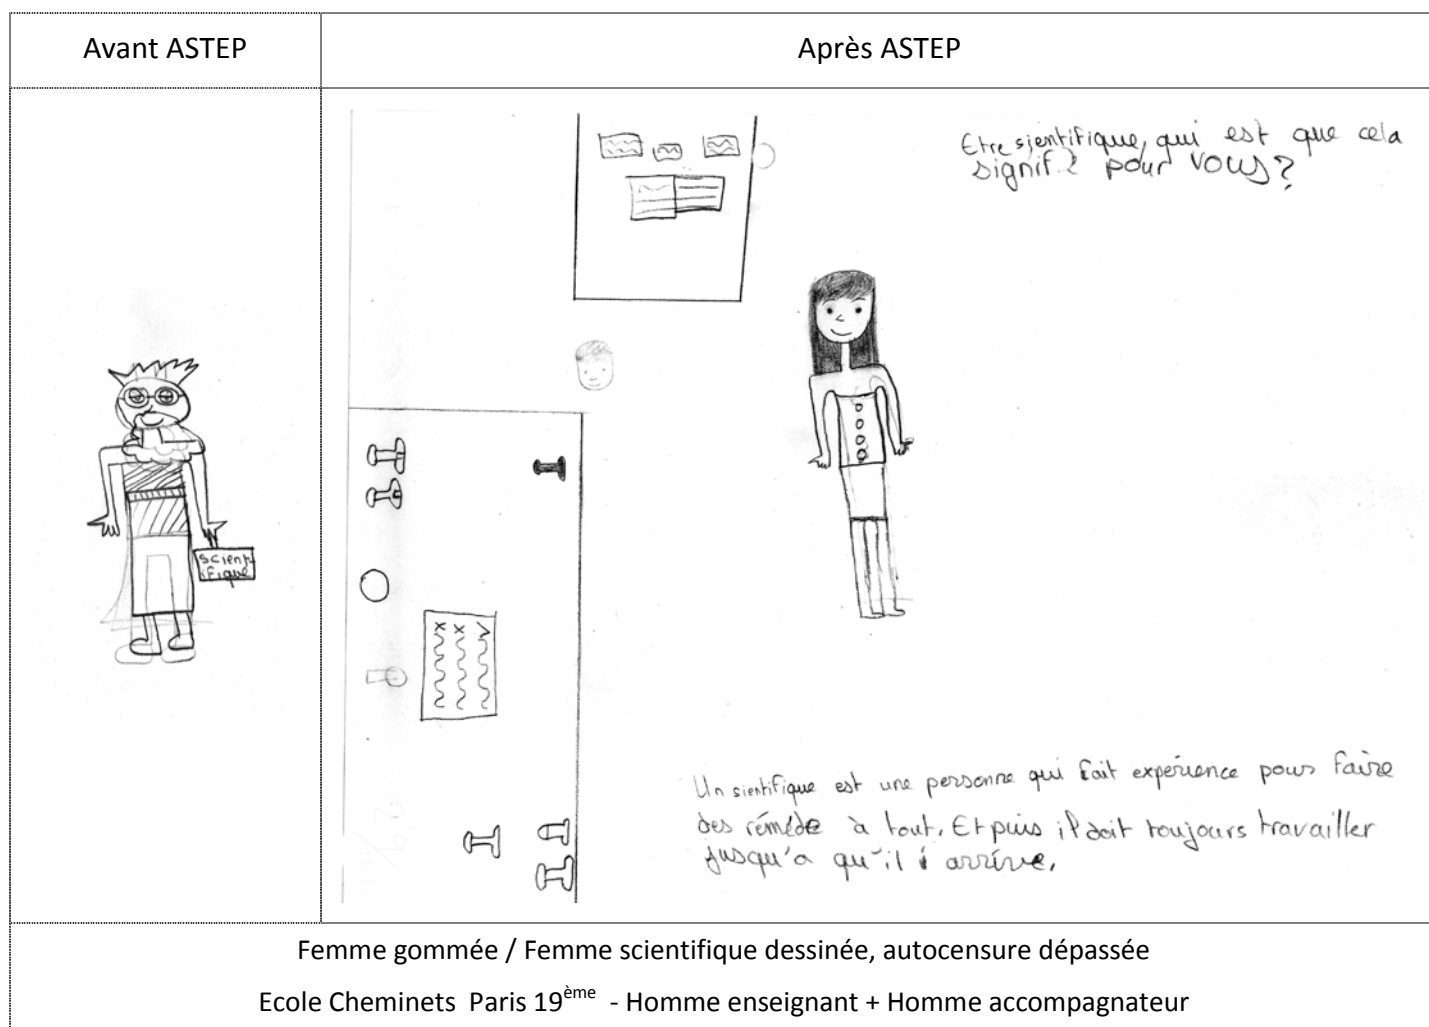 Avant ASTEP
Après ASTEP
Etre sientifique, qui est que cela
signif? pour VOUS?
scient-
ifique
Un sientifique est une personne qui fait expérience pour faire
des rémède à tout. Et puis il doit toujours travailler
jusqu'a qu'il i arrive.
Femme gommée / Femme scientifique dessinée, autocensure dépassée
Ecole Cheminets Paris 19ème - Homme enseignant + Homme accompagnateur